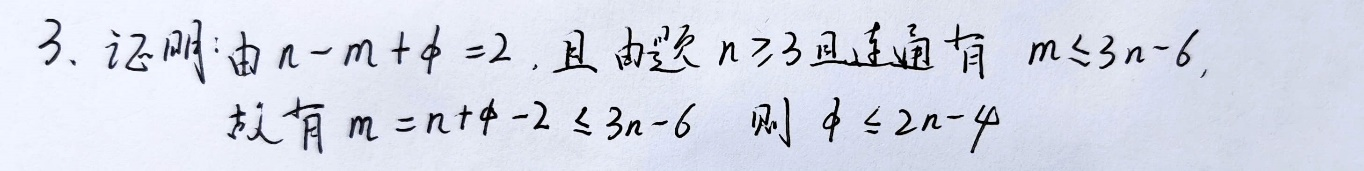 3、证明:由 n-m+ϕ=2,且由题 n≥3且连通有 m≤3n-6,
故有 m=n+ϕ-2≤3n-6 则 ϕ≤2n-4